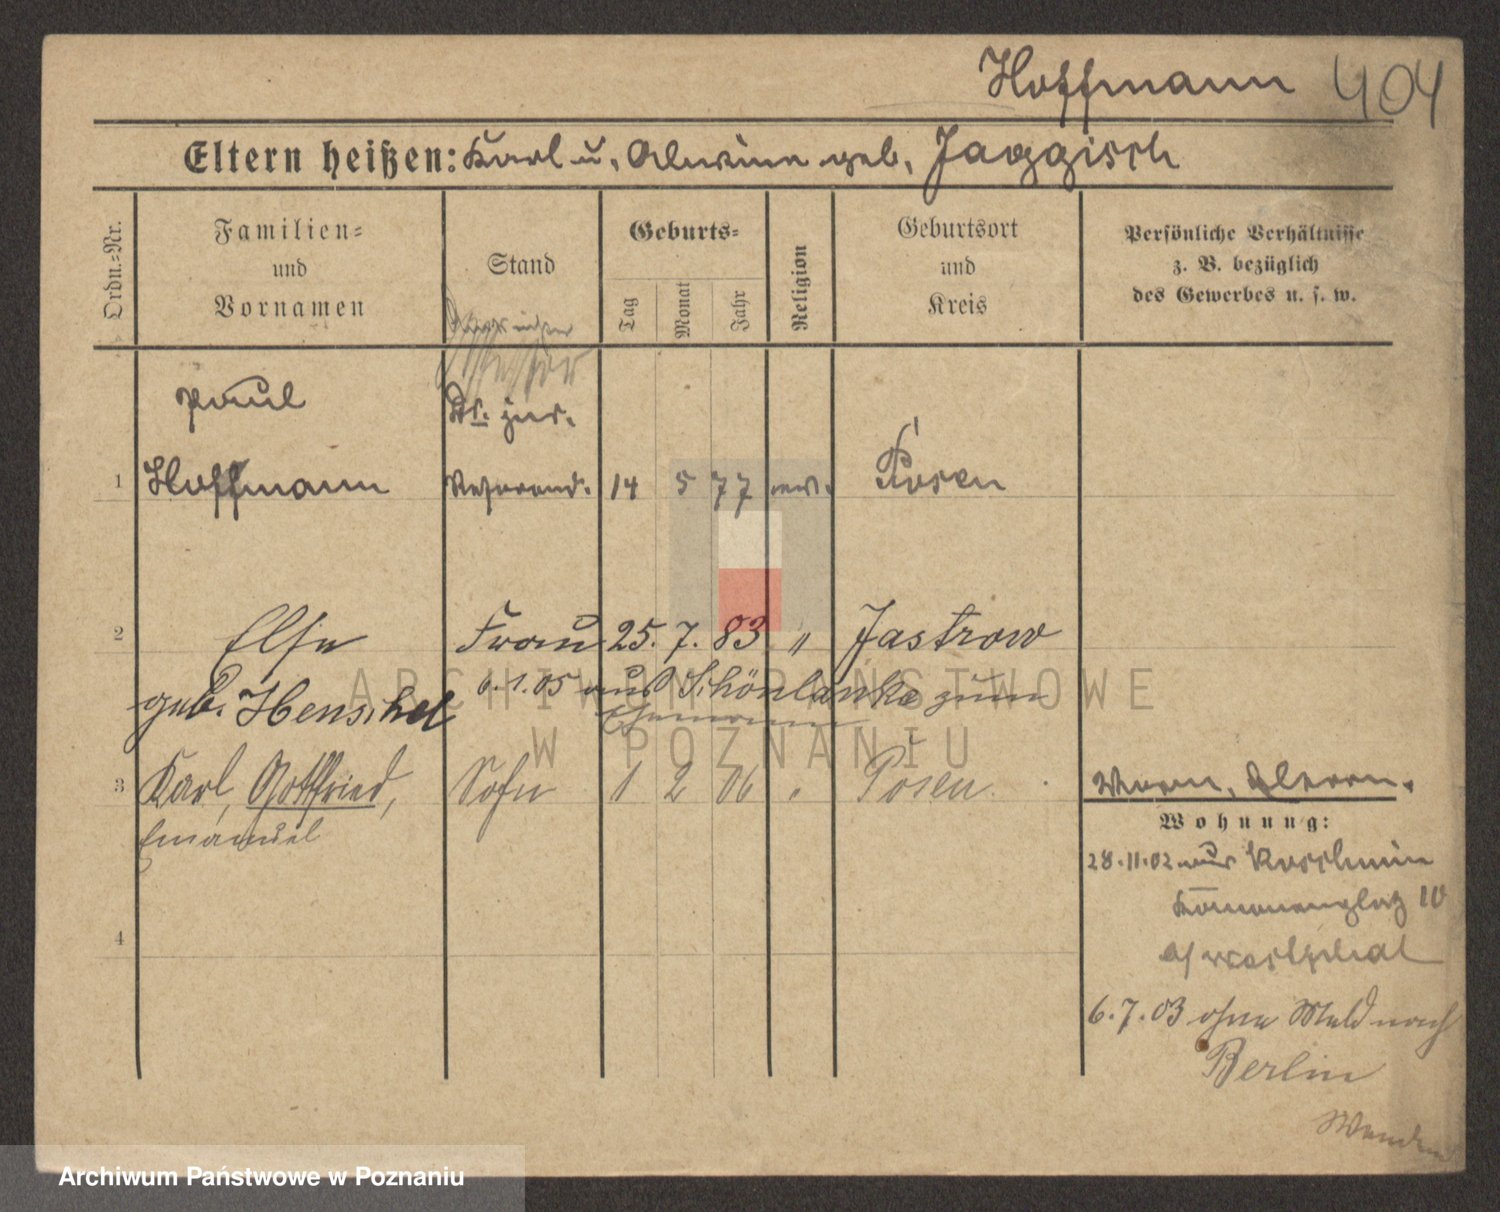 Hoffmann 404
Eltern heißen: Karl u. Alwine geb. Jaggisch
Ordn.-Nr.
Familien-
und
Vornamen
Stand
Geburts-
Tag
Monat
Jahr
Religion
Geburtsort
und
Kreis
Persönliche Verhältnisse
z. B. bezüglich
des Gewerbes u. s. w.
Assessor
Paul
Dr. jur.
1 Hoffmann Referend. 14 5 77 Posen
2 Else Frau 25. 7. 83 " Jastrow
geb. Henschel 6.1.05 aus Schönlanke zum
Ehemann
3 Karl, Gottfried, Sohn 1 2 06 " Posen
Emanuel
Eltern.
Wohnung:
28.11.02 aus Koschmin
10
b/ Westphal
4
6.7.03 ohne Meld nach
Berlin
Wenden
ARCHIWUM PAŃSTWOWE
W POZNANIU
Archiwum Państwowe w Poznaniu